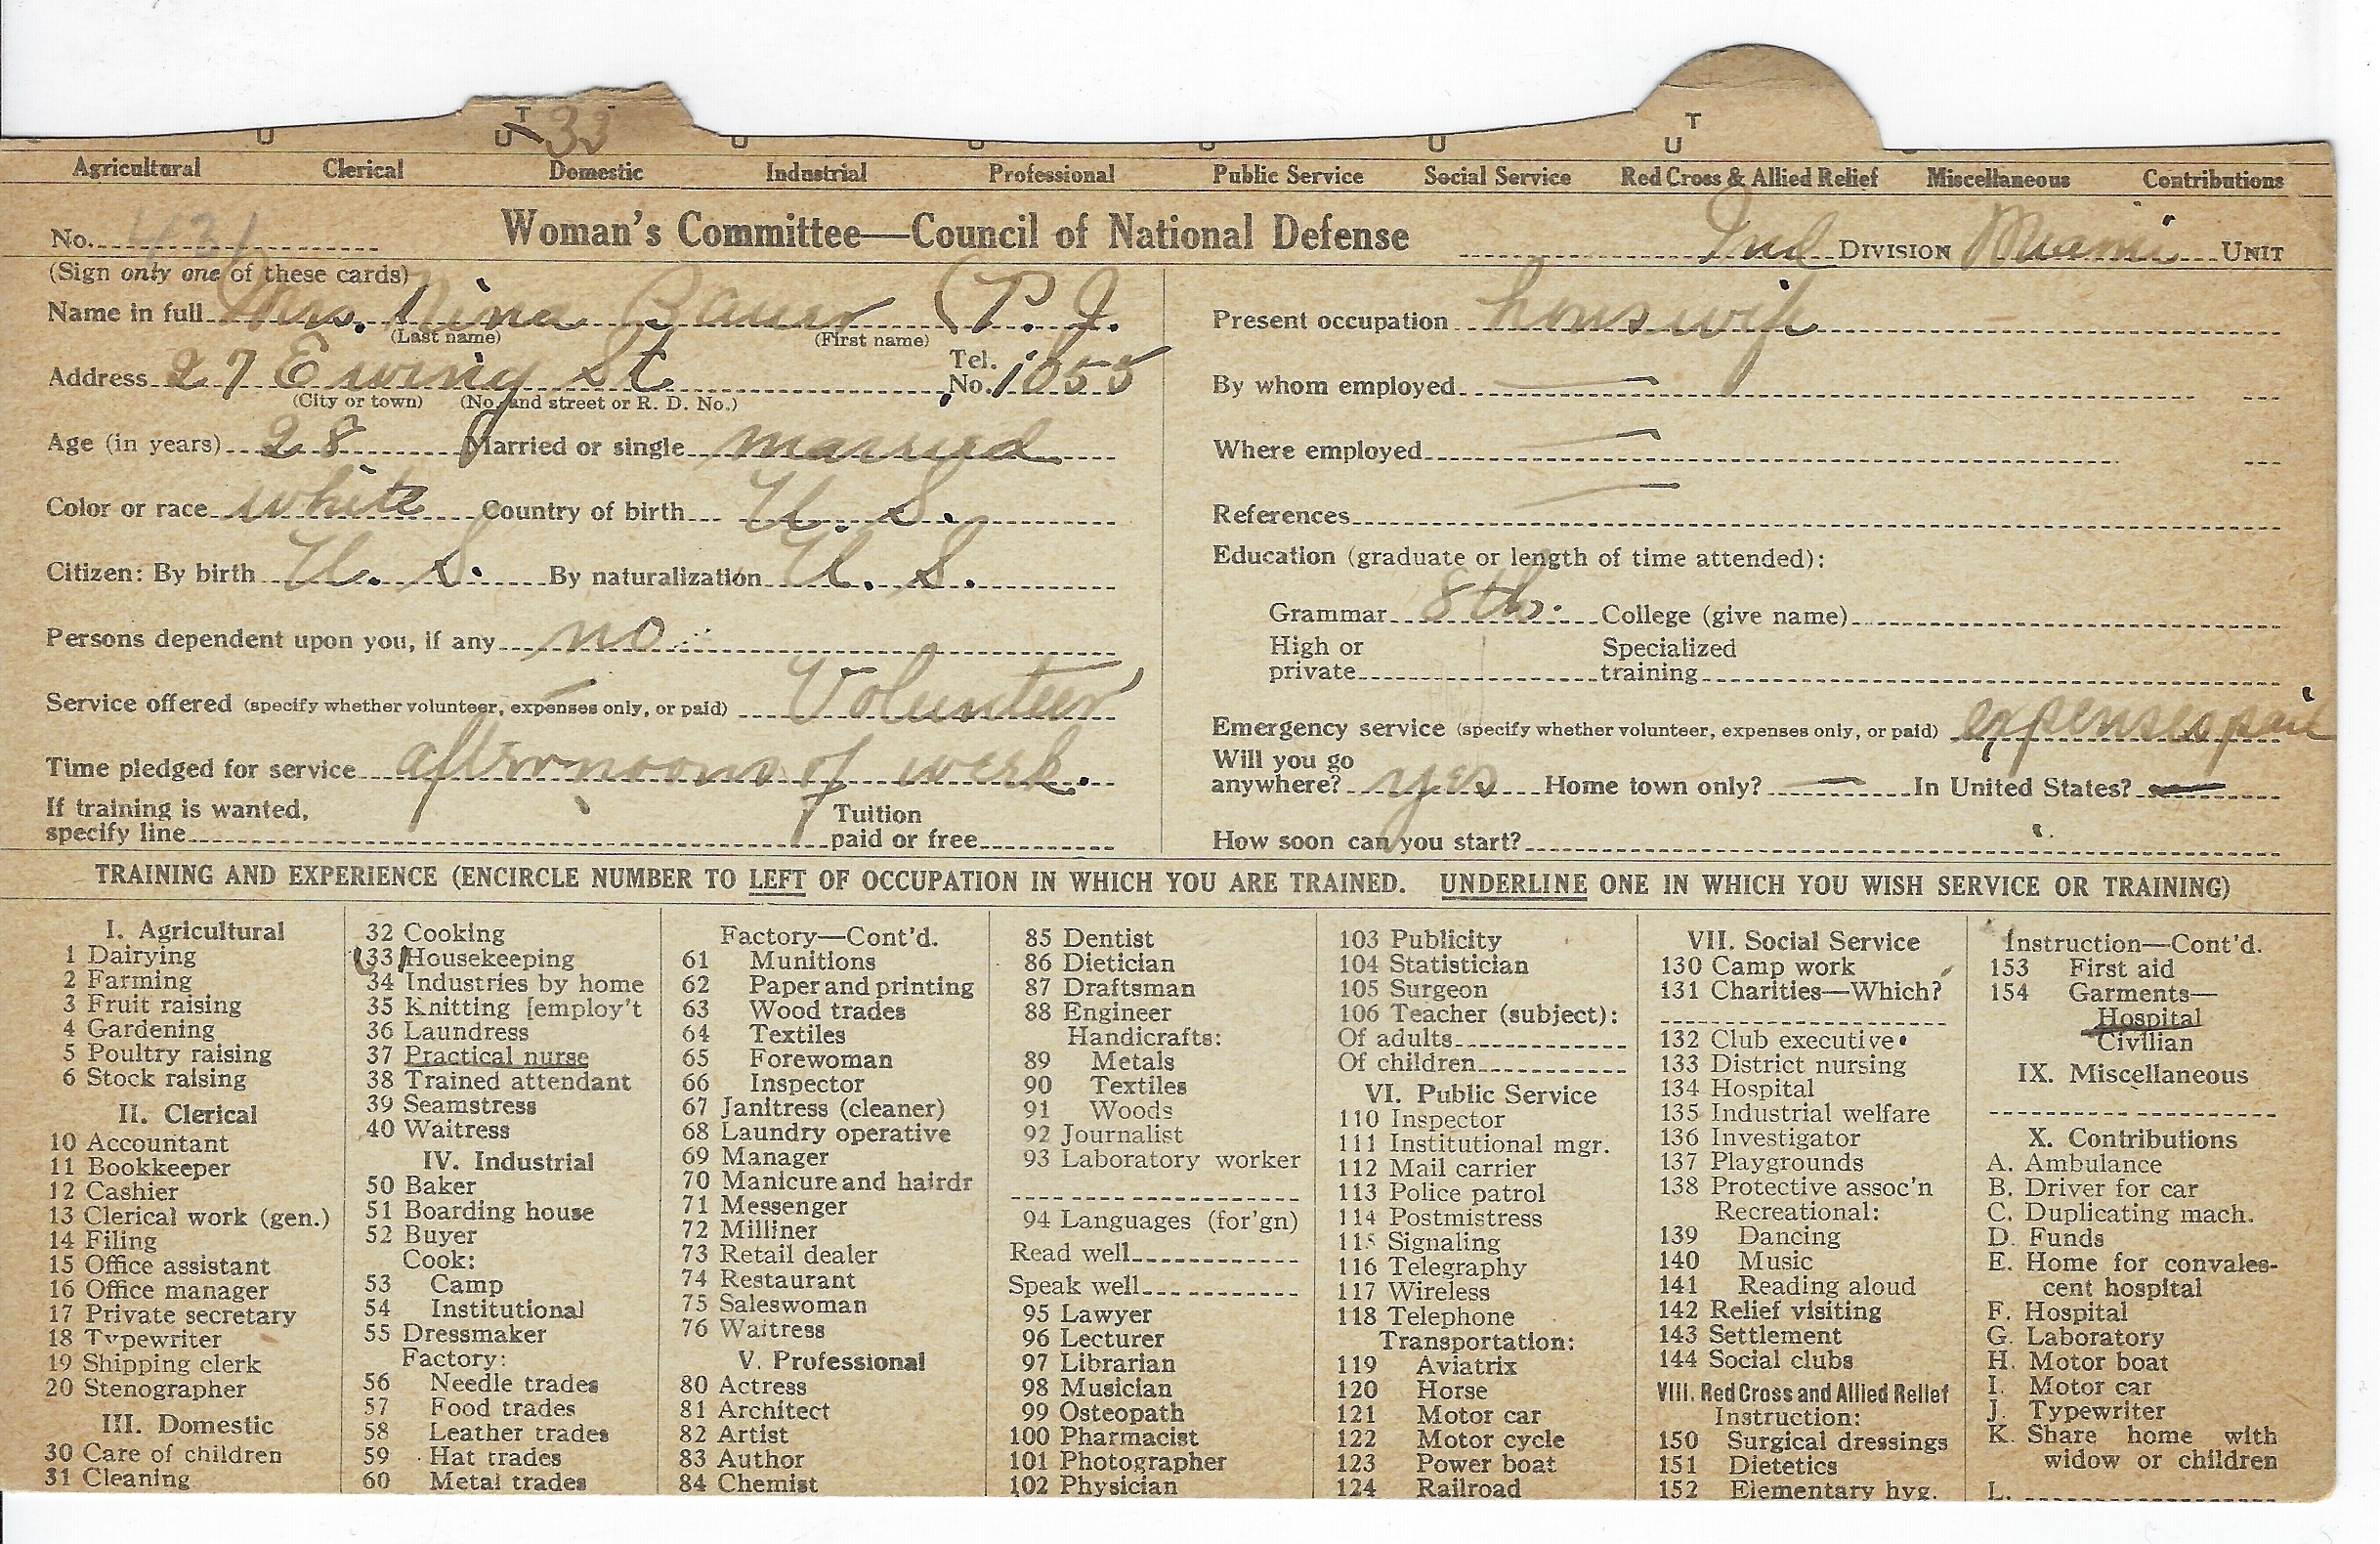 U T 33 U T
Agricultural Clerical Domestic Industrial Professional Public Service Social Service Red Cross & Allied Relief Miscellaneous Contributions
No. 431 Woman's Committee—Council of National Defense Ind DIVISION Miami UNIT
(Sign only one of these cards)
Name in full Mrs. Nina Bauer (P. J.
(Last name) (First name)
Address 27 Ewing St Tel. No. 1055
(City or town) (No. and street or R. D. No.)
Age (in years) 28 Married or single married
Color or race white Country of birth U. S.
Citizen: By birth U. S. By naturalization U. S.
Persons dependent upon you, if any no
Service offered (specify whether volunteer, expenses only, or paid) Volunteer
Time pledged for service afternoons of week.
If training is wanted,
specify line Tuition
paid or free
Present occupation houswife
By whom employed
Where employed
References
Education (graduate or length of time attended):
Grammar 8th. College (give name)
High or
private Specialized
training
Emergency service (specify whether volunteer, expenses only, or paid) expenses paid
Will you go
anywhere? yes Home town only? — In United States? —
How soon can you start?
TRAINING AND EXPERIENCE (ENCIRCLE NUMBER TO LEFT OF OCCUPATION IN WHICH YOU ARE TRAINED. UNDERLINE ONE IN WHICH YOU WISH SERVICE OR TRAINING)
I. Agricultural
1 Dairying
2 Farming
3 Fruit raising
4 Gardening
5 Poultry raising
6 Stock raising
II. Clerical
10 Accountant
11 Bookkeeper
12 Cashier
13 Clerical work (gen.)
14 Filing
15 Office assistant
16 Office manager
17 Private secretary
18 Typewriter
19 Shipping clerk
20 Stenographer
III. Domestic
30 Care of children
31 Cleaning
32 Cooking
33 Housekeeping
34 Industries by home
35 Knitting [employ't
36 Laundress
37 Practical nurse
38 Trained attendant
39 Seamstress
40 Waitress
IV. Industrial
50 Baker
51 Boarding house
52 Buyer
Cook:
53 Camp
54 Institutional
55 Dressmaker
Factory:
56 Needle trades
57 Food trades
58 Leather trades
59 Hat trades
60 Metal trades
Factory—Cont'd.
61 Munitions
62 Paper and printing
63 Wood trades
64 Textiles
65 Forewoman
66 Inspector
67 Janitress (cleaner)
68 Laundry operative
69 Manager
70 Manicure and hairdr
71 Messenger
72 Milliner
73 Retail dealer
74 Restaurant
75 Saleswoman
76 Waitress
V. Professional
80 Actress
81 Architect
82 Artist
83 Author
84 Chemist
85 Dentist
86 Dietician
87 Draftsman
88 Engineer
Handicrafts:
89 Metals
90 Textiles
91 Woods
92 Journalist
93 Laboratory worker
94 Languages (for'gn)
Read well
Speak well
95 Lawyer
96 Lecturer
97 Librarian
98 Musician
99 Osteopath
100 Pharmacist
101 Photographer
102 Physician
103 Publicity
104 Statistician
105 Surgeon
106 Teacher (subject):
Of adults
Of children
VI. Public Service
110 Inspector
111 Institutional mgr.
112 Mail carrier
113 Police patrol
114 Postmistress
115 Signaling
116 Telegraphy
117 Wireless
118 Telephone
Transportation:
119 Aviatrix
120 Horse
121 Motor car
122 Motor cycle
123 Power boat
124 Railroad
VII. Social Service
130 Camp work
131 Charities—Which?
132 Club executive
133 District nursing
134 Hospital
135 Industrial welfare
136 Investigator
137 Playgrounds
138 Protective assoc'n
Recreational:
139 Dancing
140 Music
141 Reading aloud
142 Relief visiting
143 Settlement
144 Social clubs
VIII. Red Cross and Allied Relief
Instruction:
150 Surgical dressings
151 Dietetics
152 Elementary hyg.
Instruction—Cont'd.
153 First aid
154 Garments—
Hospital
Civilian
IX. Miscellaneous
X. Contributions
A. Ambulance
B. Driver for car
C. Duplicating mach.
D. Funds
E. Home for convales-
cent hospital
F. Hospital
G. Laboratory
H. Motor boat
I. Motor car
J. Typewriter
K. Share home with
widow or children
L.